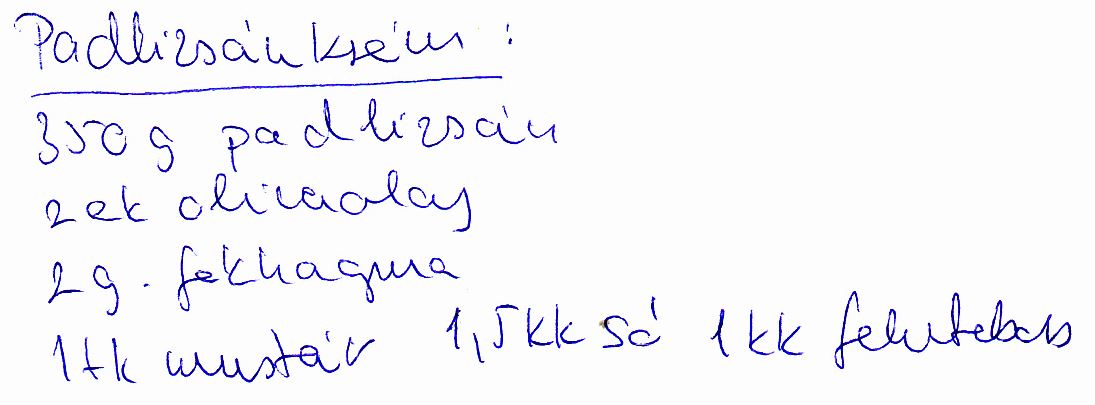 Padlizsánkrém:
350 g padlizsán
2 ek olivaolaj
2 g. fokhagyma
1 tk mustár 1,5 kk só 1 kk feketebors